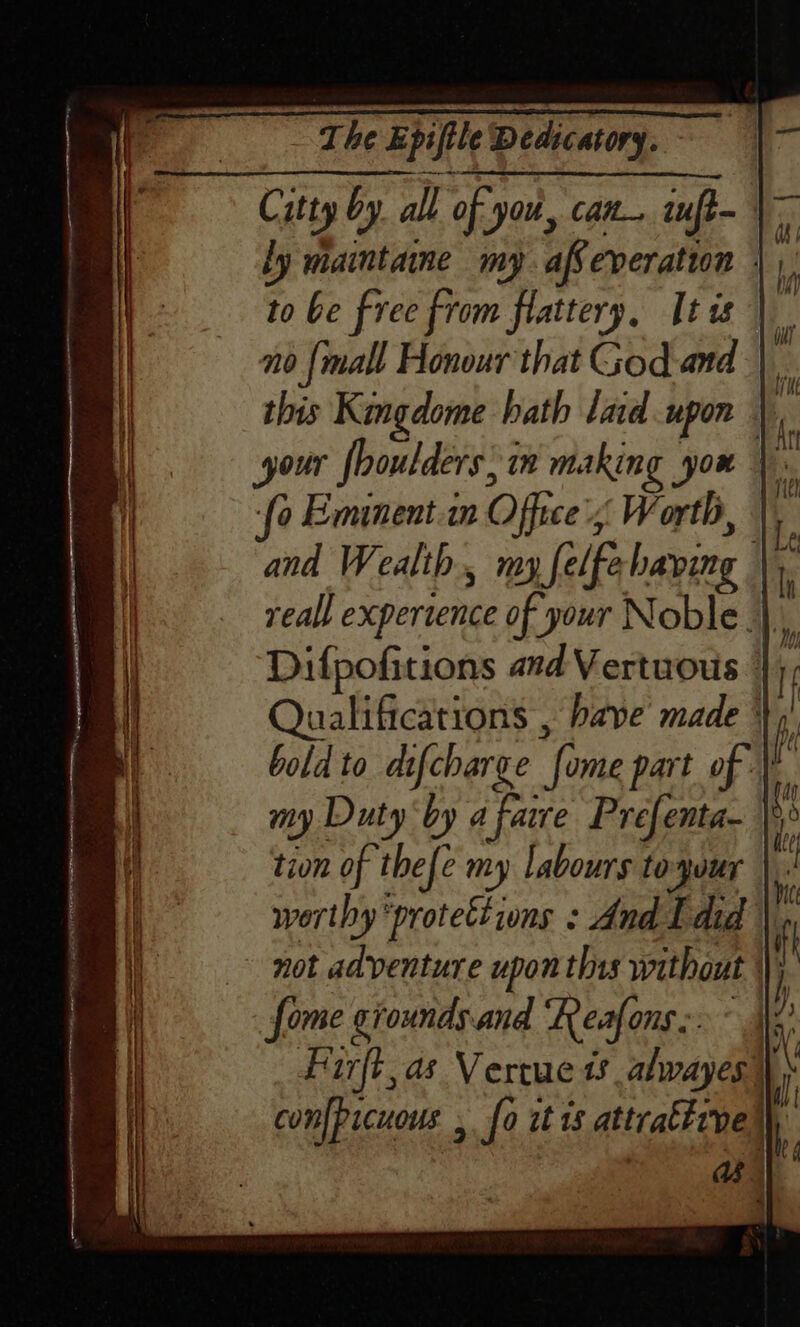 The Epiſtle Dedicatory.
Citty by all of you, can iuſt-
ly maintaine my aſſeveration
to be free from flattery. It is
no ſmall Honour that God and
this Kingdome hath laid upon
your ſhoulders, in making you
ſo Eminent in Office, Worth,
and Wealth, my ſelfe having
reall experience of your Noble
Diſpoſitions and Vertuous
Qualifications, have made
bold to diſcharge ſome part of
my Duty by a faire Preſenta-
tion of theſe my labours to your
worthy protections : And I did
not adventure upon this without
ſome grounds and Reaſons.
Firſt, as Vertue is alwayes
conſpicuous, ſo it is attractive
as